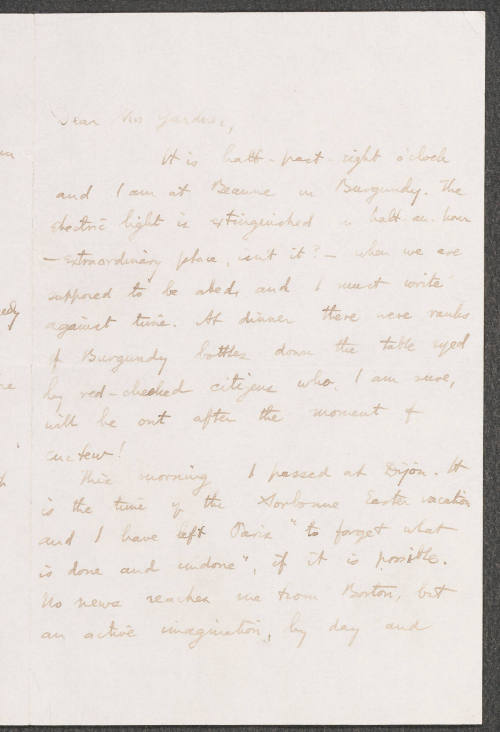 Dear Mrs Gardner,
It is half-past-eight o'clock
and I am at Beaune in Burgundy. The
electric light is extinguished in half an hour
– extraordinary place, isn't it? – when we are
supposed to be abed, and I must write
against time. At dinner there were ranks
of Burgundy bottles down the table eyed
by red-cheeked citizens who, I am sure,
will be out after the moment of
curfew!
This morning I passed at Dijon. It
is the time of the Sorbonne Easter vacation
and I have left Paris "to forget what
is done and undone", if it is possible.
No news reaches me from Boston, but
an active imagination, by day and